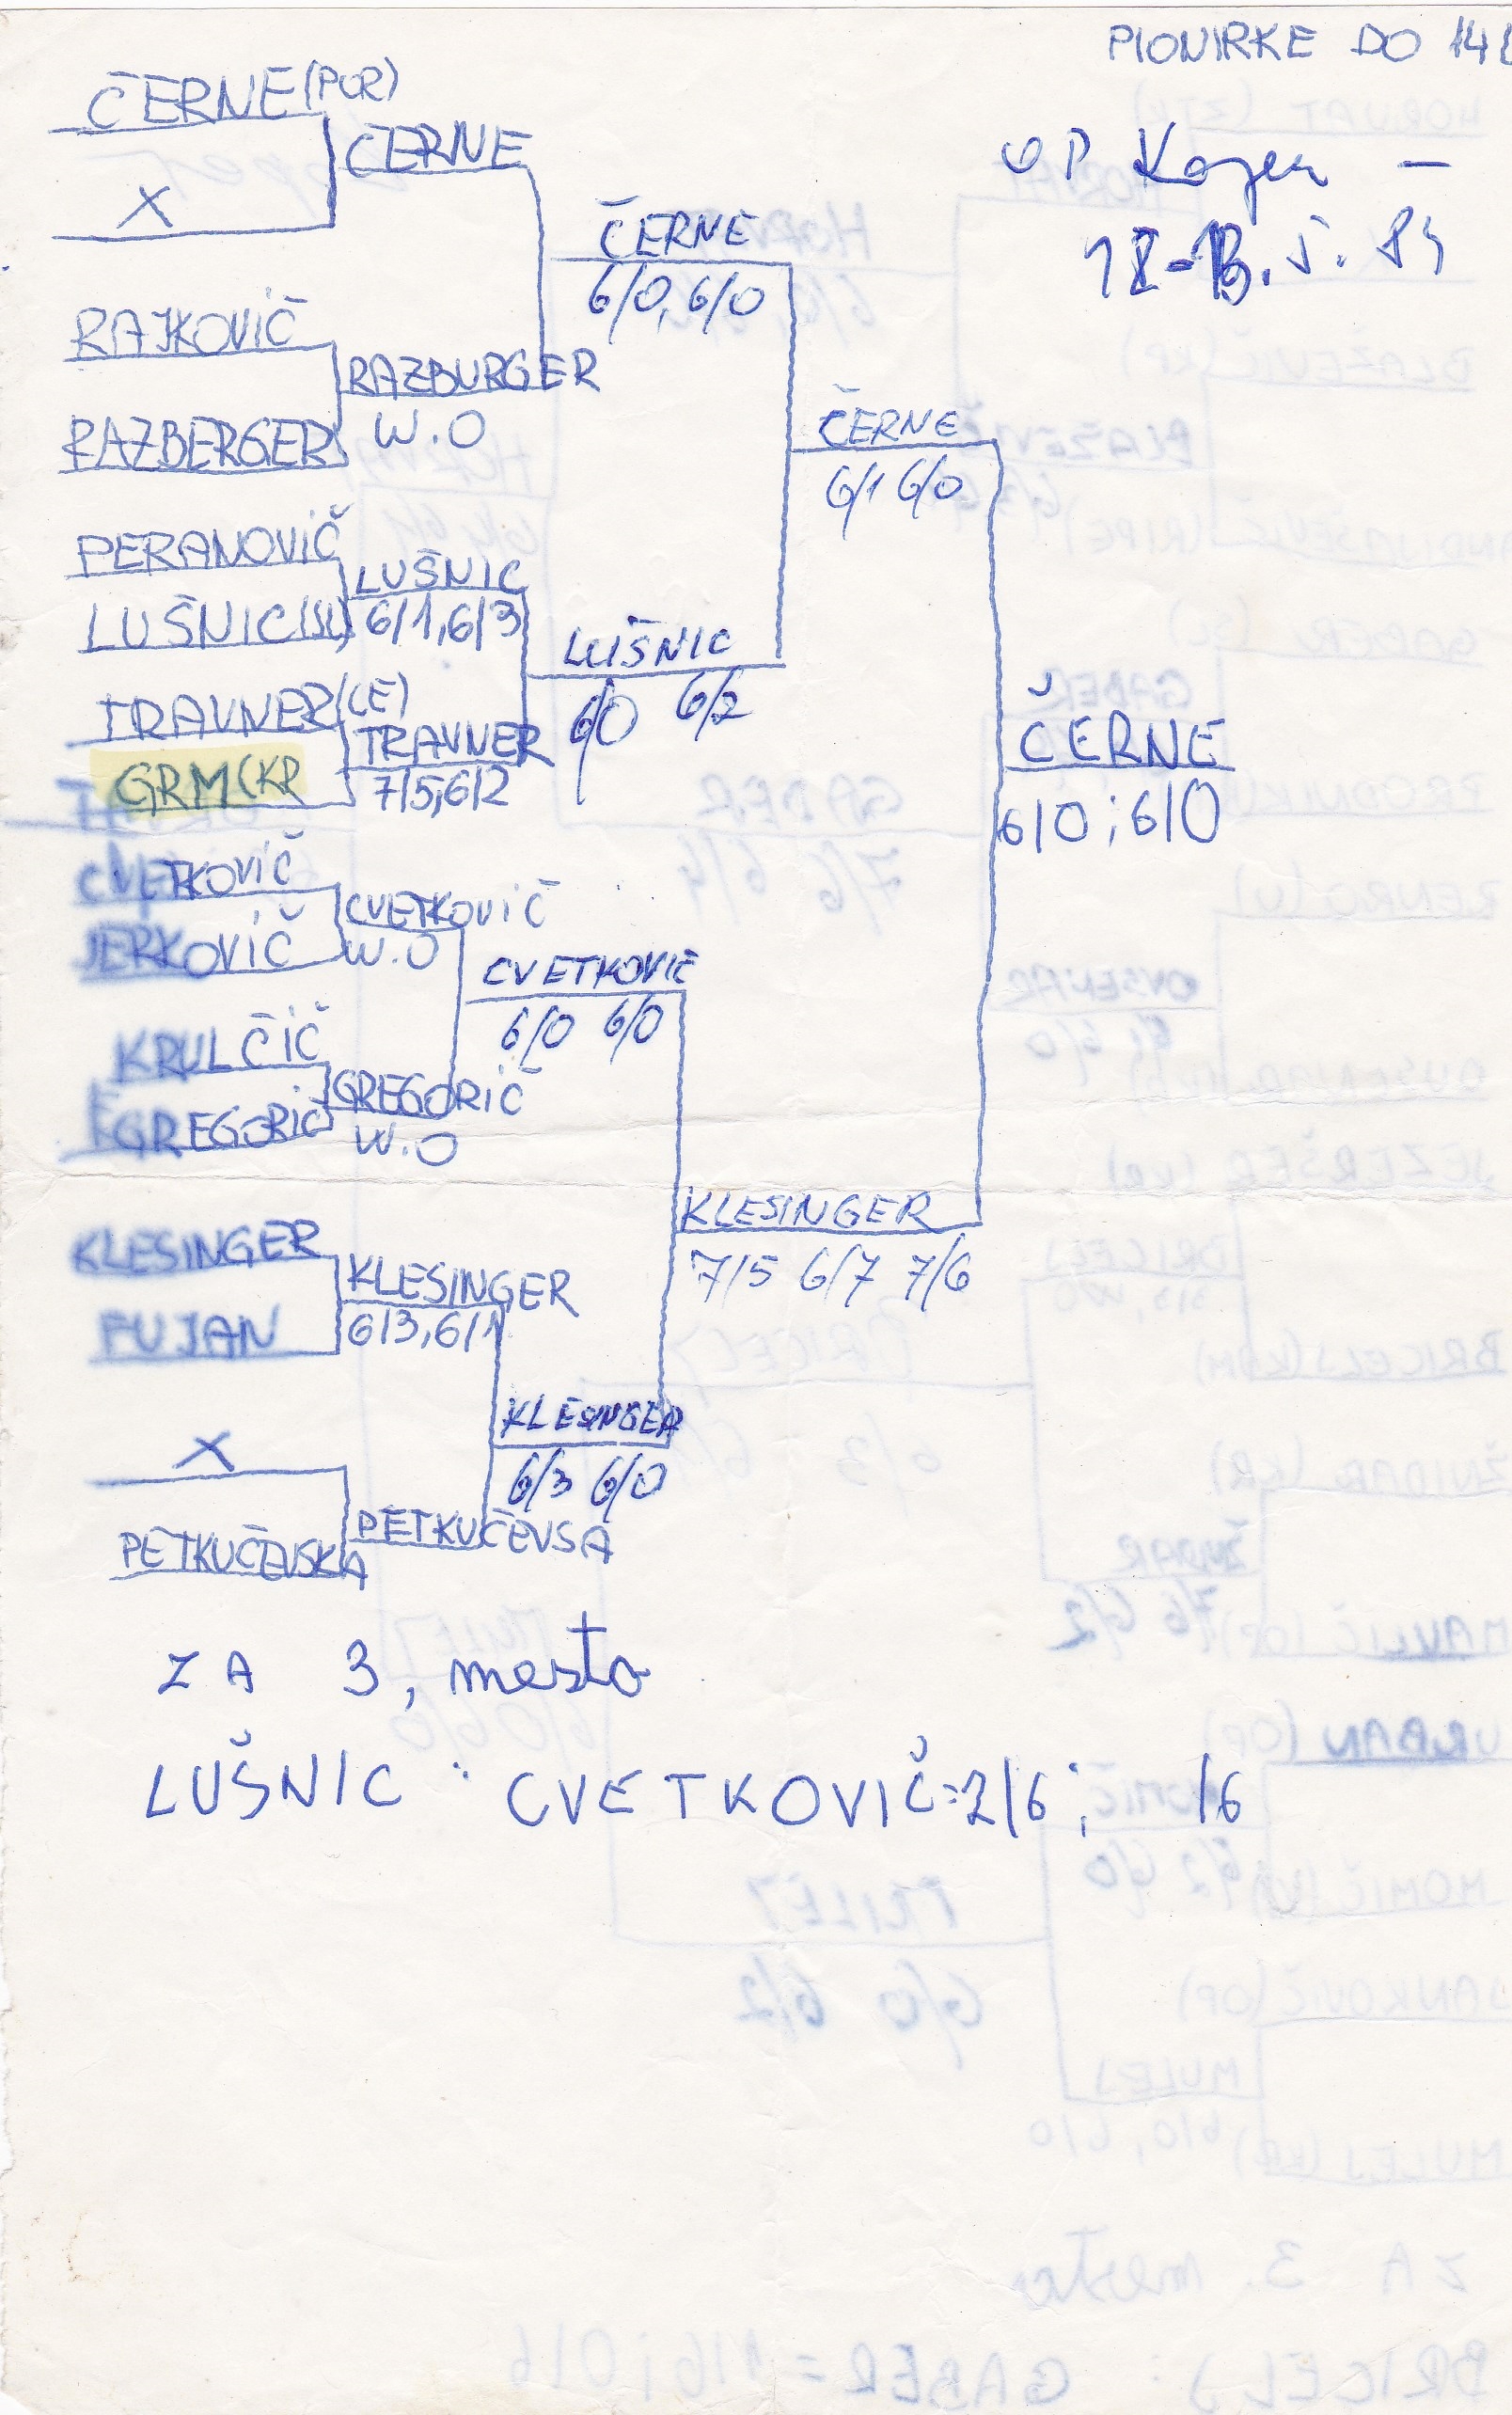 PIONIRKE DO 14
ČERNE (POR)
ČERNE
OP Koper -
12-13. 5. 84
X
ČERNE
6/0, 6/0
RAJKOVIČ
RAZBURGER
W.O
RAZBERGER
ČERNE
6/1 6/0
PERANOVIČ
LUŠNIC
6/1, 6/3
LUŠNIC (SL)
LUŠNIC
6/0 6/2
TRAVNER (CE)
TRAVNER
7/5, 6/2
GRM (KR
ČERNE
6/0 ; 6/0
CVETKOVIČ
CVETKOVIČ
W.O
JERKOVIČ
CVETKOVIČ
6/0 6/0
KRULČIČ
GREGORIČ
W.O
GREGORIČ
KLESINGER
7/5 6/7 7/6
KLESINGER
KLESINGER
6/3, 6/1
FUJAN
KLESINGER
6/3 6/0
X
PETKUČEVSA
PETKUČEVSKA
ZA 3, mesto
LUŠNIC : CVETKOVIČ = 2/6 ; /6